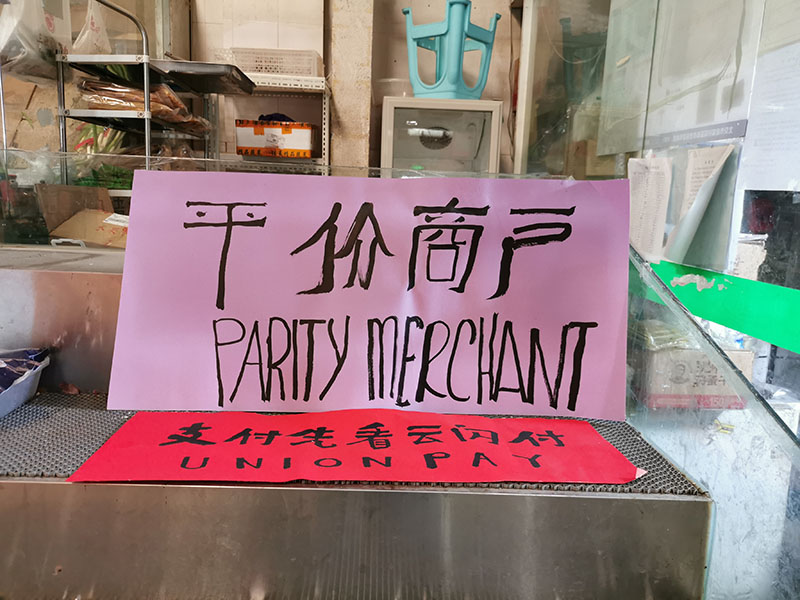 平价商户
PARITY MERCHANT
支付先看云闪付
UNION PAY